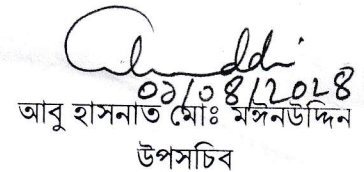 ০১/০৪/২০২৪
আবু হাসনাত মোঃ মঈনউদ্দিন
উপসচিব